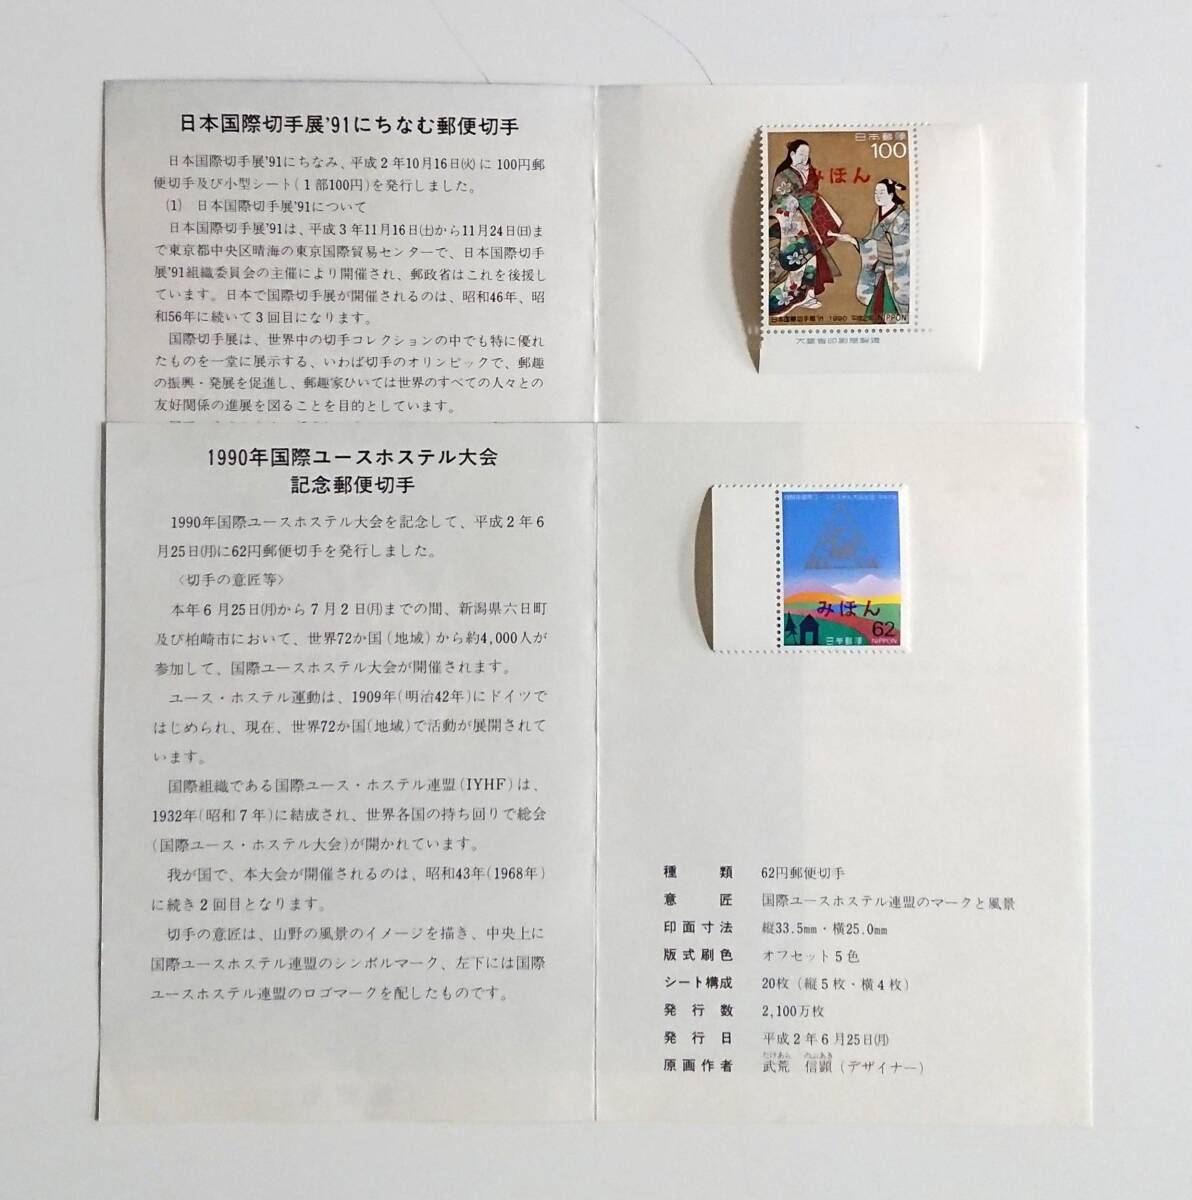 日本国際切手展'91にちなむ郵便切手
日本国際切手展'91にちなみ、平成2年10月16日(火)に100円郵
便切手及び小型シート(1部100円)を発行しました。
(1) 日本国際切手展'91について
日本国際切手展'91は、平成3年11月16日(土)から11月24日(日)ま
で東京都中央区晴海の東京国際貿易センターで、日本国際切手
展'91組織委員会の主催により開催され、郵政省はこれを後援し
ています。日本で国際切手展が開催されるのは、昭和46年、昭
和56年に続いて3回目になります。
国際切手展は、世界中の切手コレクションの中でも特に優れ
たものを一堂に展示する、いわば切手のオリンピックで、郵趣
の振興・発展を促進し、郵趣家ひいては世界のすべての人々との
友好関係の進展を図ることを目的としています。
日本郵便
100
みほん
日本国際切手展'91 1990 平成2年 NIPPON
大蔵省印刷局製造
1990年国際ユースホステル大会
記念郵便切手
1990年国際ユースホステル大会を記念して、平成2年6
月25日(月)に62円郵便切手を発行しました。
〈切手の意匠等〉
本年6月25日(月)から7月2日(月)までの間、新潟県六日町
及び柏崎市において、世界72か国(地域)から約4,000人が
参加して、国際ユースホステル大会が開催されます。
ユース・ホステル運動は、1909年(明治42年)にドイツで
はじめられ、現在、世界72か国(地域)で活動が展開されて
います。
国際組織である国際ユース・ホステル連盟(IYHF)は、
1932年(昭和7年)に結成され、世界各国の持ち回りで総会
(国際ユース・ホステル大会)が開かれています。
我が国で、本大会が開催されるのは、昭和43年(1968年)
に続き2回目となります。
切手の意匠は、山野の風景のイメージを描き、中央上に
国際ユースホステル連盟のシンボルマーク、左下には国際
ユースホステル連盟のロゴマークを配したものです。
1990年国際ユースホステル大会記念 平成2年
みほん
62
日本郵便 NIPPON
種類 62円郵便切手
意匠 国際ユースホステル連盟のマークと風景
印面寸法 縦33.5mm・横25.0mm
版式刷色 オフセット5色
シート構成 20枚(縦5枚・横4枚)
発行数 2,100万枚
発行日 平成2年6月25日(月)
たけあら のぶあき
原画作者 武荒 信顕(デザイナー)